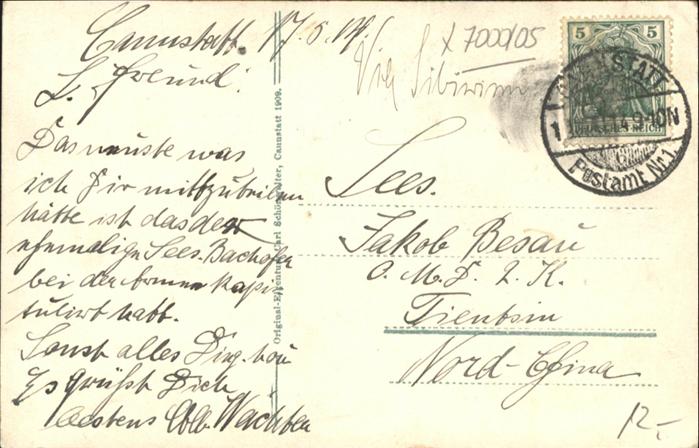 Cannstatt. 17.6.
L. Freund!
Das neuste was
ich Dir mitzuteilen
hätte ist das der
ehemalige Sees. Bachofer
bei der kapi
tulirt hatt.
Sonst alles
Es grüßt Dich
bestens
Original-Eigentum Carl Cannstatt 1909.
Via Sibirien
x 7000/05
5 5
DEUTSCHES REICH
CANNSTATT
9-10N
Postamt Nr. 1
Sees.
Jakob Besau
O. M. D. 2. K.
Tientsin
Nord-China
12,-